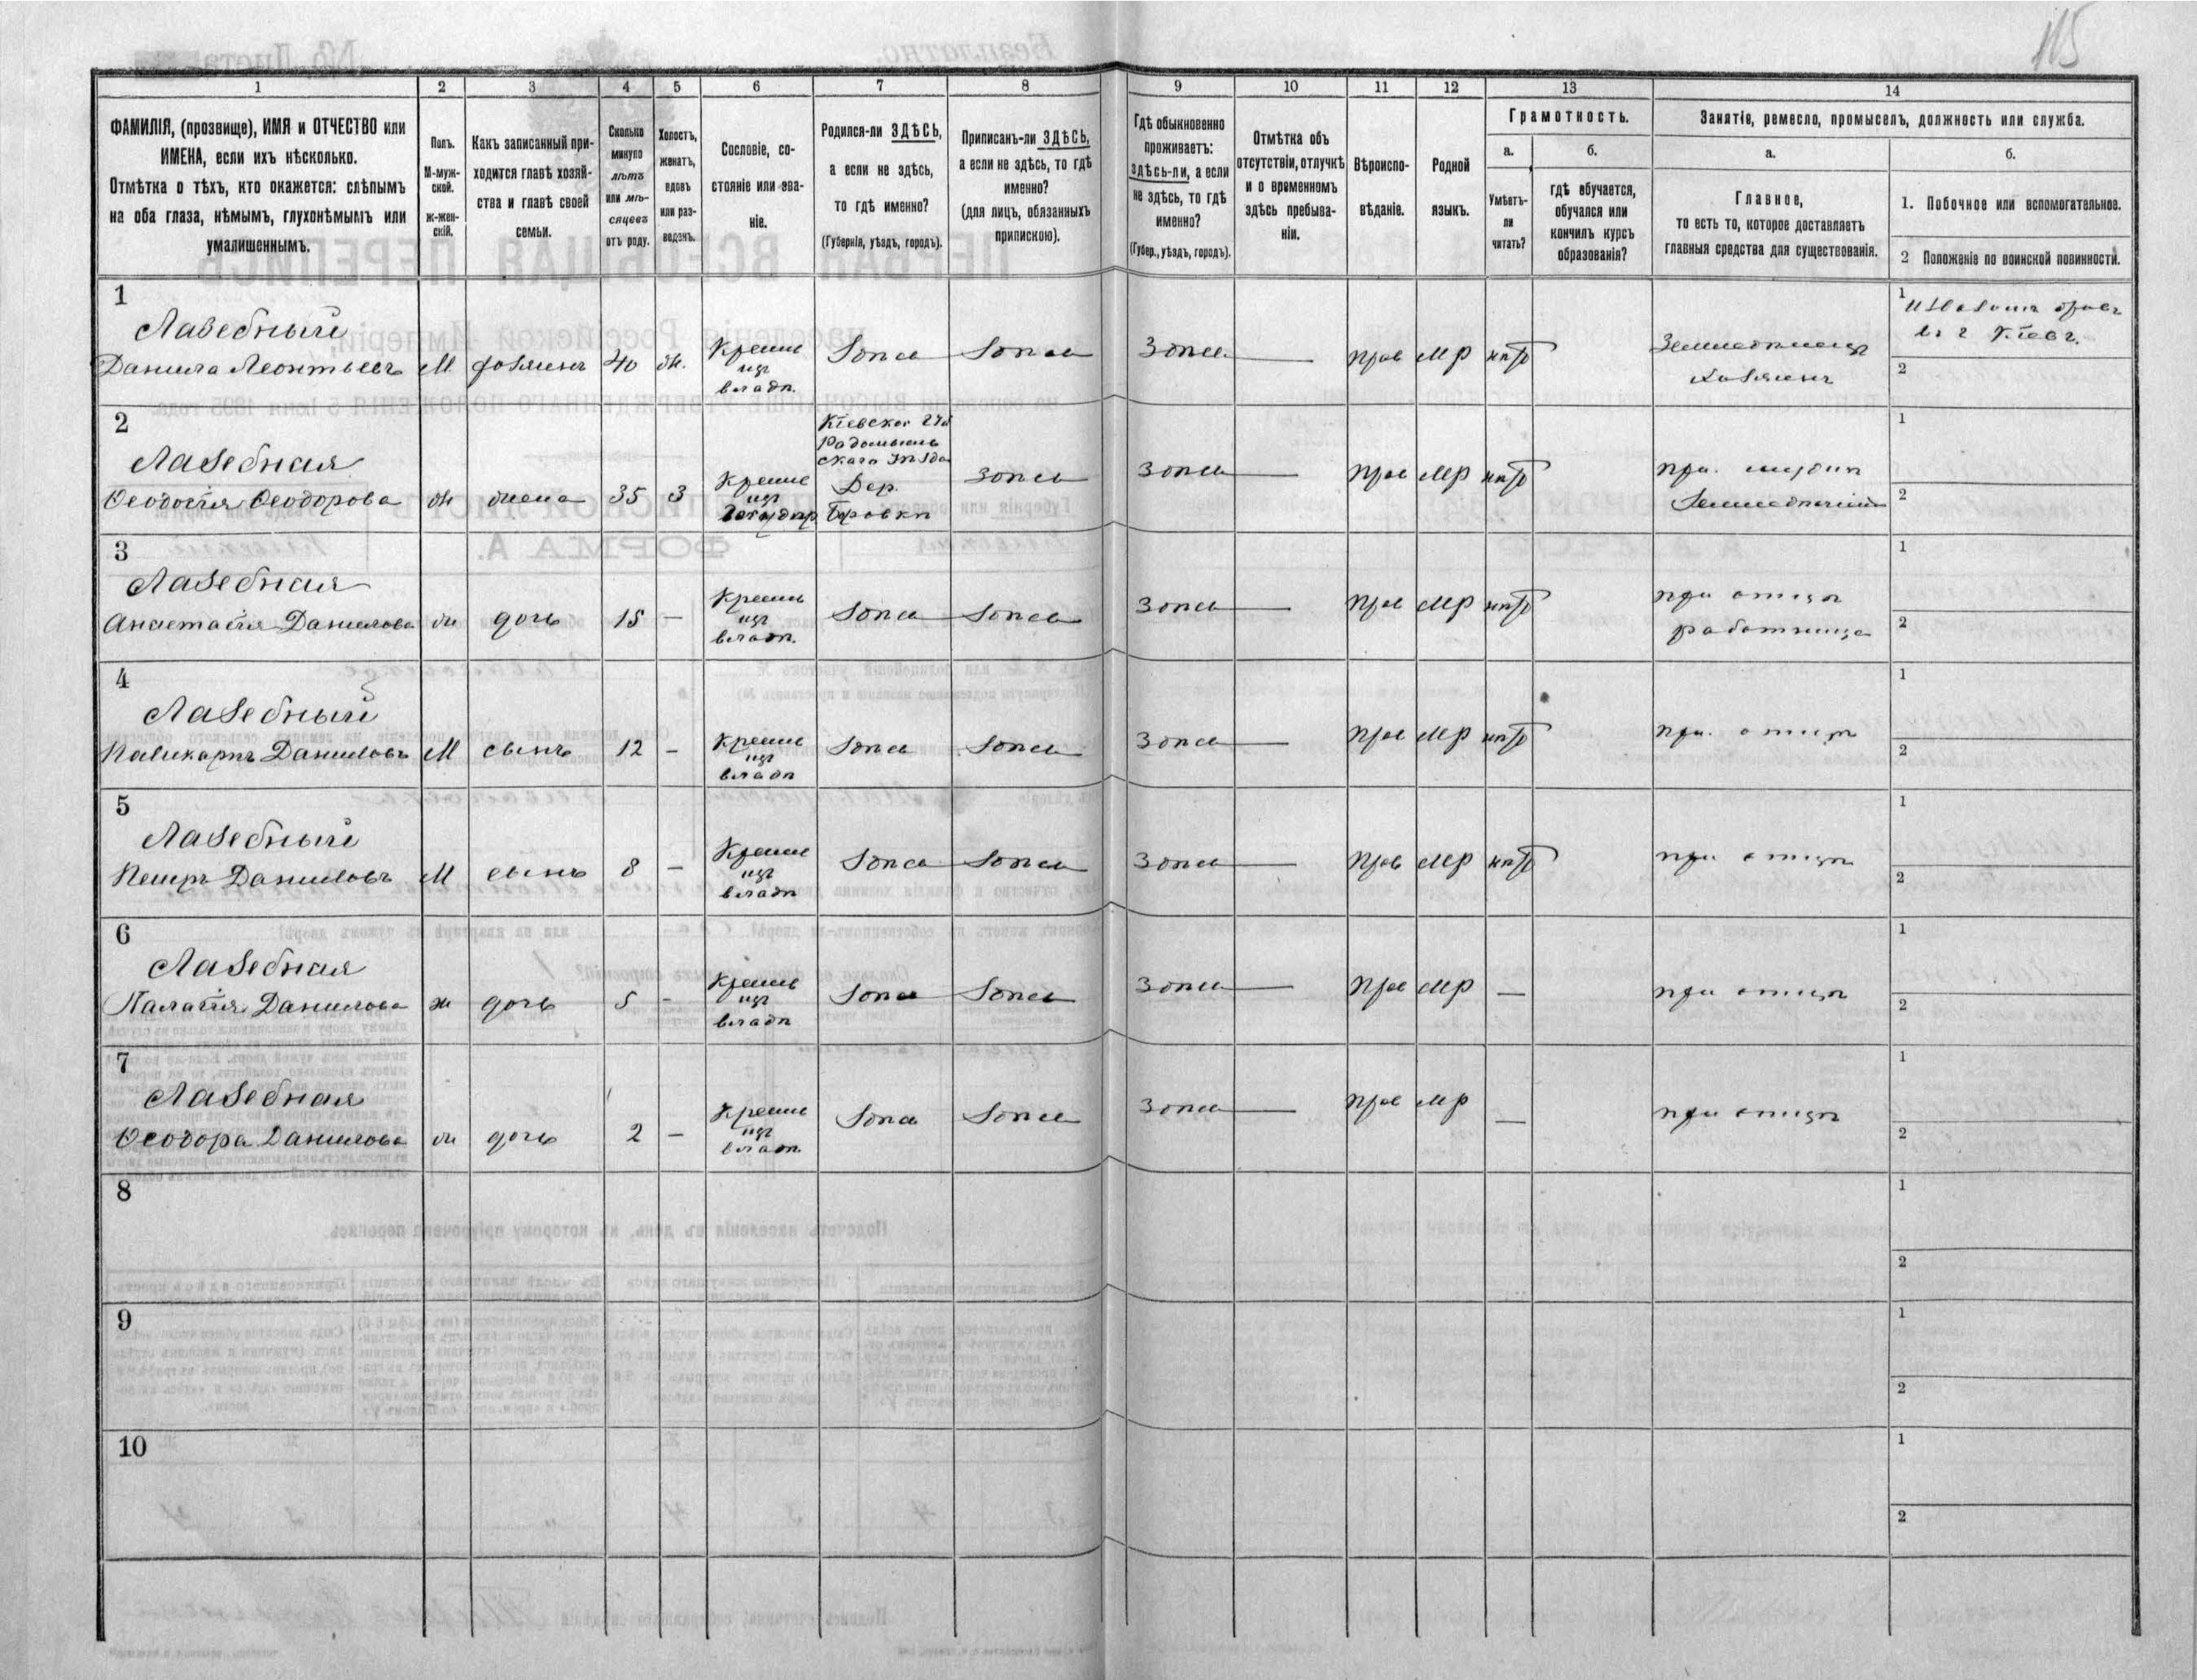 115
1 2 3 4 5 6 7 8 9 10 11 12 13 14
ФАМИЛІЯ, (прозвище), ИМЯ и ОТЧЕСТВО или
ИМЕНА, если ихъ нѣсколько.
Отмѣтка о тѣхъ, кто окажется: слѣпымъ
на оба глаза, нѣмымъ, глухонѣмымъ или
умалишеннымъ.
Полъ.
М-муж-
ской.
ж-жен-
скій.
Какъ записанный при-
ходится главѣ хозяй-
ства и главѣ своей
семьи.
Сколько
минуло
лѣтъ
или мѣ-
сяцевъ
отъ роду.
Холостъ,
женатъ,
вдовъ
или раз-
веденъ.
Сословіе, со-
стояніе или зва-
ніе.
Родился-ли ЗДѢСЬ,
а если не здѣсь,
то гдѣ именно?
(Губернія, уѣздъ, городъ).
Приписанъ-ли ЗДѢСЬ,
а если не здѣсь, то гдѣ
именно?
(для лицъ, обязанныхъ
припискою).
Гдѣ обыкновенно
проживаетъ:
здѣсь-ли, а если
не здѣсь, то гдѣ
именно?
(Губер., уѣздъ, городъ).
Отмѣтка объ
отсутствіи, отлучкѣ
и о временномъ
здѣсь пребыва-
ніи.
Вѣроиспо-
вѣданіе.
Родной
языкъ.
Грамотность.
а.
Умѣетъ-
ли
читать?
б.
гдѣ обучается,
обучался или
кончилъ курсъ
образованія?
Занятіе, ремесло, промыселъ, должность или служба.
а.
Главное,
то есть то, которое доставляетъ
главныя средства для существованія.
б.
1. Побочное или вспомогательное.
2 Положеніе по воинской повинности.
1
Лазебный
Данила Леонтьевъ М хозяинъ 40 ж.
Крестьянинъ
владѣ.
Здѣсь Здѣсь Здѣсь — прав мр нѣтъ
Земледѣлецъ
хозяинъ
1
въ г Кіевъ.
2
2
Лазебная
Ѳеодосія Ѳеодорова ж жена 35 З
Кіевской губ
Радомысль
скаго уѣзда
Дер.
Боровки
Здѣсь Здѣсь — прав мр нѣтъ
при мужѣ
1
2
3
Лазебная
Анастасія Данилова ж дочь 15 —
владѣ.
Здѣсь Здѣсь Здѣсь — прав мр нѣтъ
при отцѣ
работница
1
2
4
Лазебный
Поликарпъ Даниловъ М сынъ 12 —
владѣ
Здѣсь Здѣсь Здѣсь — прав мр нѣтъ
при отцѣ
1
2
5
Лазебный
Петръ Даниловъ М сынъ 8 —
владѣ
Здѣсь Здѣсь Здѣсь — прав мр нѣтъ
при отцѣ
1
2
6
Лазебная
Палагія Данилова ж дочь 5 -
владѣ
Здѣсь Здѣсь Здѣсь — прав мр —
при отцѣ
1
2
7
Лазебная
Ѳеодора Данилова ж дочь 2 —
владѣ.
Здѣсь Здѣсь Здѣсь — прав мр —
при отцѣ
1
2
8
1
2
9
1
2
10
1
2